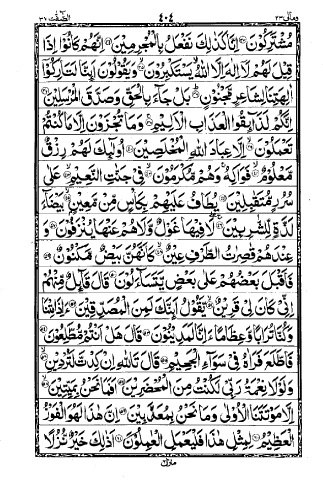 ومالى ٢٣ ٤٠٤ الصّٰفّٰت ٣٧
مُشْتَرِكُوْنَ اِنَّا كَذٰلِكَ نَفْعَلُ بِالْمُجْرِمِيْنَ اِنَّهُمْ كَانُوْٓا اِذَا
قِيْلَ لَهُمْ لَآ اِلٰهَ اِلَّا اللّٰهُ يَسْتَكْبِرُوْنَ وَيَقُوْلُوْنَ اَئِنَّا لَتَارِكُوْٓا
اٰلِهَتِنَا لِشَاعِرٍ مَّجْنُوْنٍ بَلْ جَآءَ بِالْحَقِّ وَصَدَّقَ الْمُرْسَلِيْنَ
اِنَّكُمْ لَذَآئِقُوا الْعَذَابِ الْاَلِيْمِ وَمَا تُجْزَوْنَ اِلَّا مَا كُنْتُمْ
تَعْمَلُوْنَ اِلَّا عِبَادَ اللّٰهِ الْمُخْلَصِيْنَ اُولٰٓئِكَ لَهُمْ رِزْقٌ
مَّعْلُوْمٌ فَوَاكِهُ وَهُمْ مُّكْرَمُوْنَ فِيْ جَنّٰتِ النَّعِيْمِ عَلٰى
سُرُرٍ مُّتَقٰبِلِيْنَ يُطَافُ عَلَيْهِمْ بِكَاْسٍ مِّنْ مَّعِيْنٍ بَيْضَآءَ
لَذَّةٍ لِّلشّٰرِبِيْنَ لَا فِيْهَا غَوْلٌ وَّلَا هُمْ عَنْهَا يُنْزَفُوْنَ وَ
عِنْدَهُمْ قٰصِرٰتُ الطَّرْفِ عِيْنٌ كَاَنَّهُنَّ بَيْضٌ مَّكْنُوْنٌ
فَاَقْبَلَ بَعْضُهُمْ عَلٰى بَعْضٍ يَّتَسَآءَلُوْنَ قَالَ قَآئِلٌ مِّنْهُمْ
اِنِّيْ كَانَ لِيْ قَرِيْنٌ يَّقُوْلُ اَئِنَّكَ لَمِنَ الْمُصَدِّقِيْنَ ءَاِذَا مِتْنَا
وَكُنَّا تُرَابًا وَّعِظَامًا ءَاِنَّا لَمَدِيْنُوْنَ قَالَ هَلْ اَنْتُمْ مُّطَّلِعُوْنَ
فَاطَّلَعَ فَرَاٰهُ فِيْ سَوَآءِ الْجَحِيْمِ قَالَ تَاللّٰهِ اِنْ كِدْتَّ لَتُرْدِيْنِ
وَلَوْلَا نِعْمَةُ رَبِّيْ لَكُنْتُ مِنَ الْمُحْضَرِيْنَ اَفَمَا نَحْنُ بِمَيِّتِيْنَ
اِلَّا مَوْتَتَنَا الْاُوْلٰى وَمَا نَحْنُ بِمُعَذَّبِيْنَ اِنَّ هٰذَا لَهُوَ الْفَوْزُ
الْعَظِيْمُ لِمِثْلِ هٰذَا فَلْيَعْمَلِ الْعٰمِلُوْنَ اَذٰلِكَ خَيْرٌ نُّزُلًا